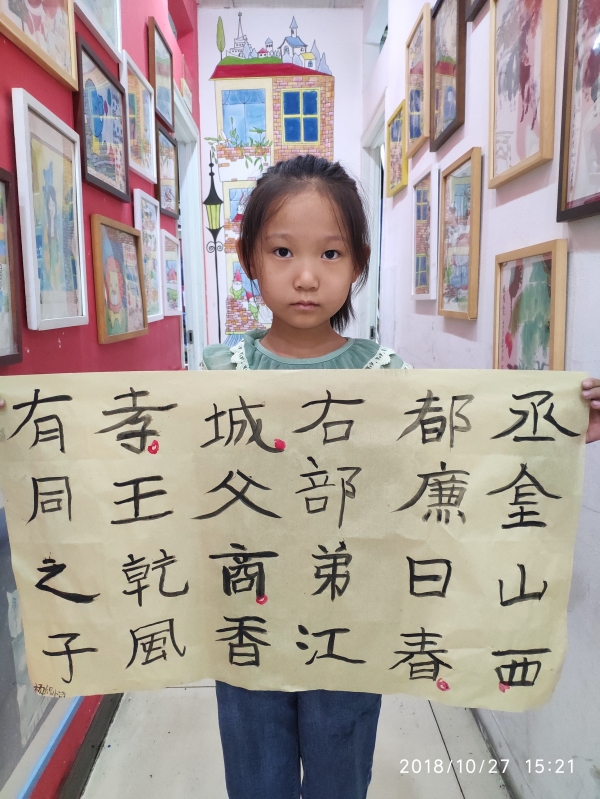 丞山西
都廉日春
右部弟江
城父商香
孝王乾風
有同之子
2018/10/27 15:21